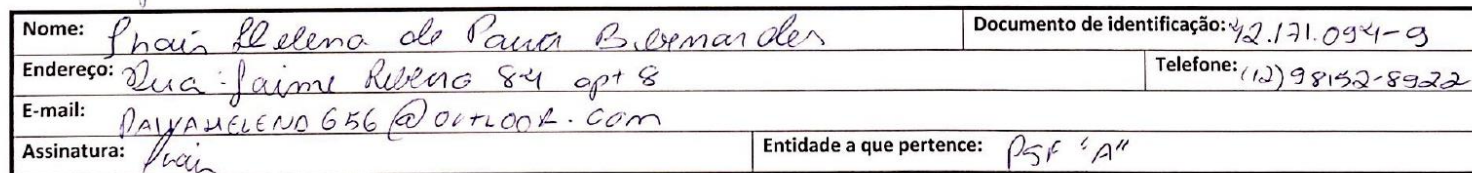 Nome: Thais Helena de Paiva Bernardes Documento de identificação: 42.171.094-9
Endereço: Rua: Jaime Ribeiro 84 apt 8 Telefone: (12) 98152-8922
E-mail: PAIVAHELENA656@OUTLOOK.COM
Assinatura: Thais Entidade a que pertence: PSF "A"